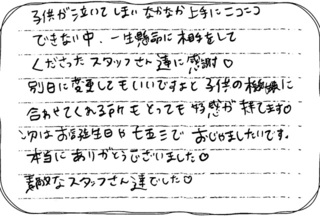 子供が泣いてしまいなかなか上手にニコニコ
できない中、一生懸命に相手をして
くださったスタッフさん達に感謝♡
別日に変更してもいいですよと子供の機嫌に
合わせてくれる所もとっても好感が持てます♡
次はお誕生日や七五三でおじゃましたいです。
本当にありがとうございました♡
素敵なスタッフさん達でした♡